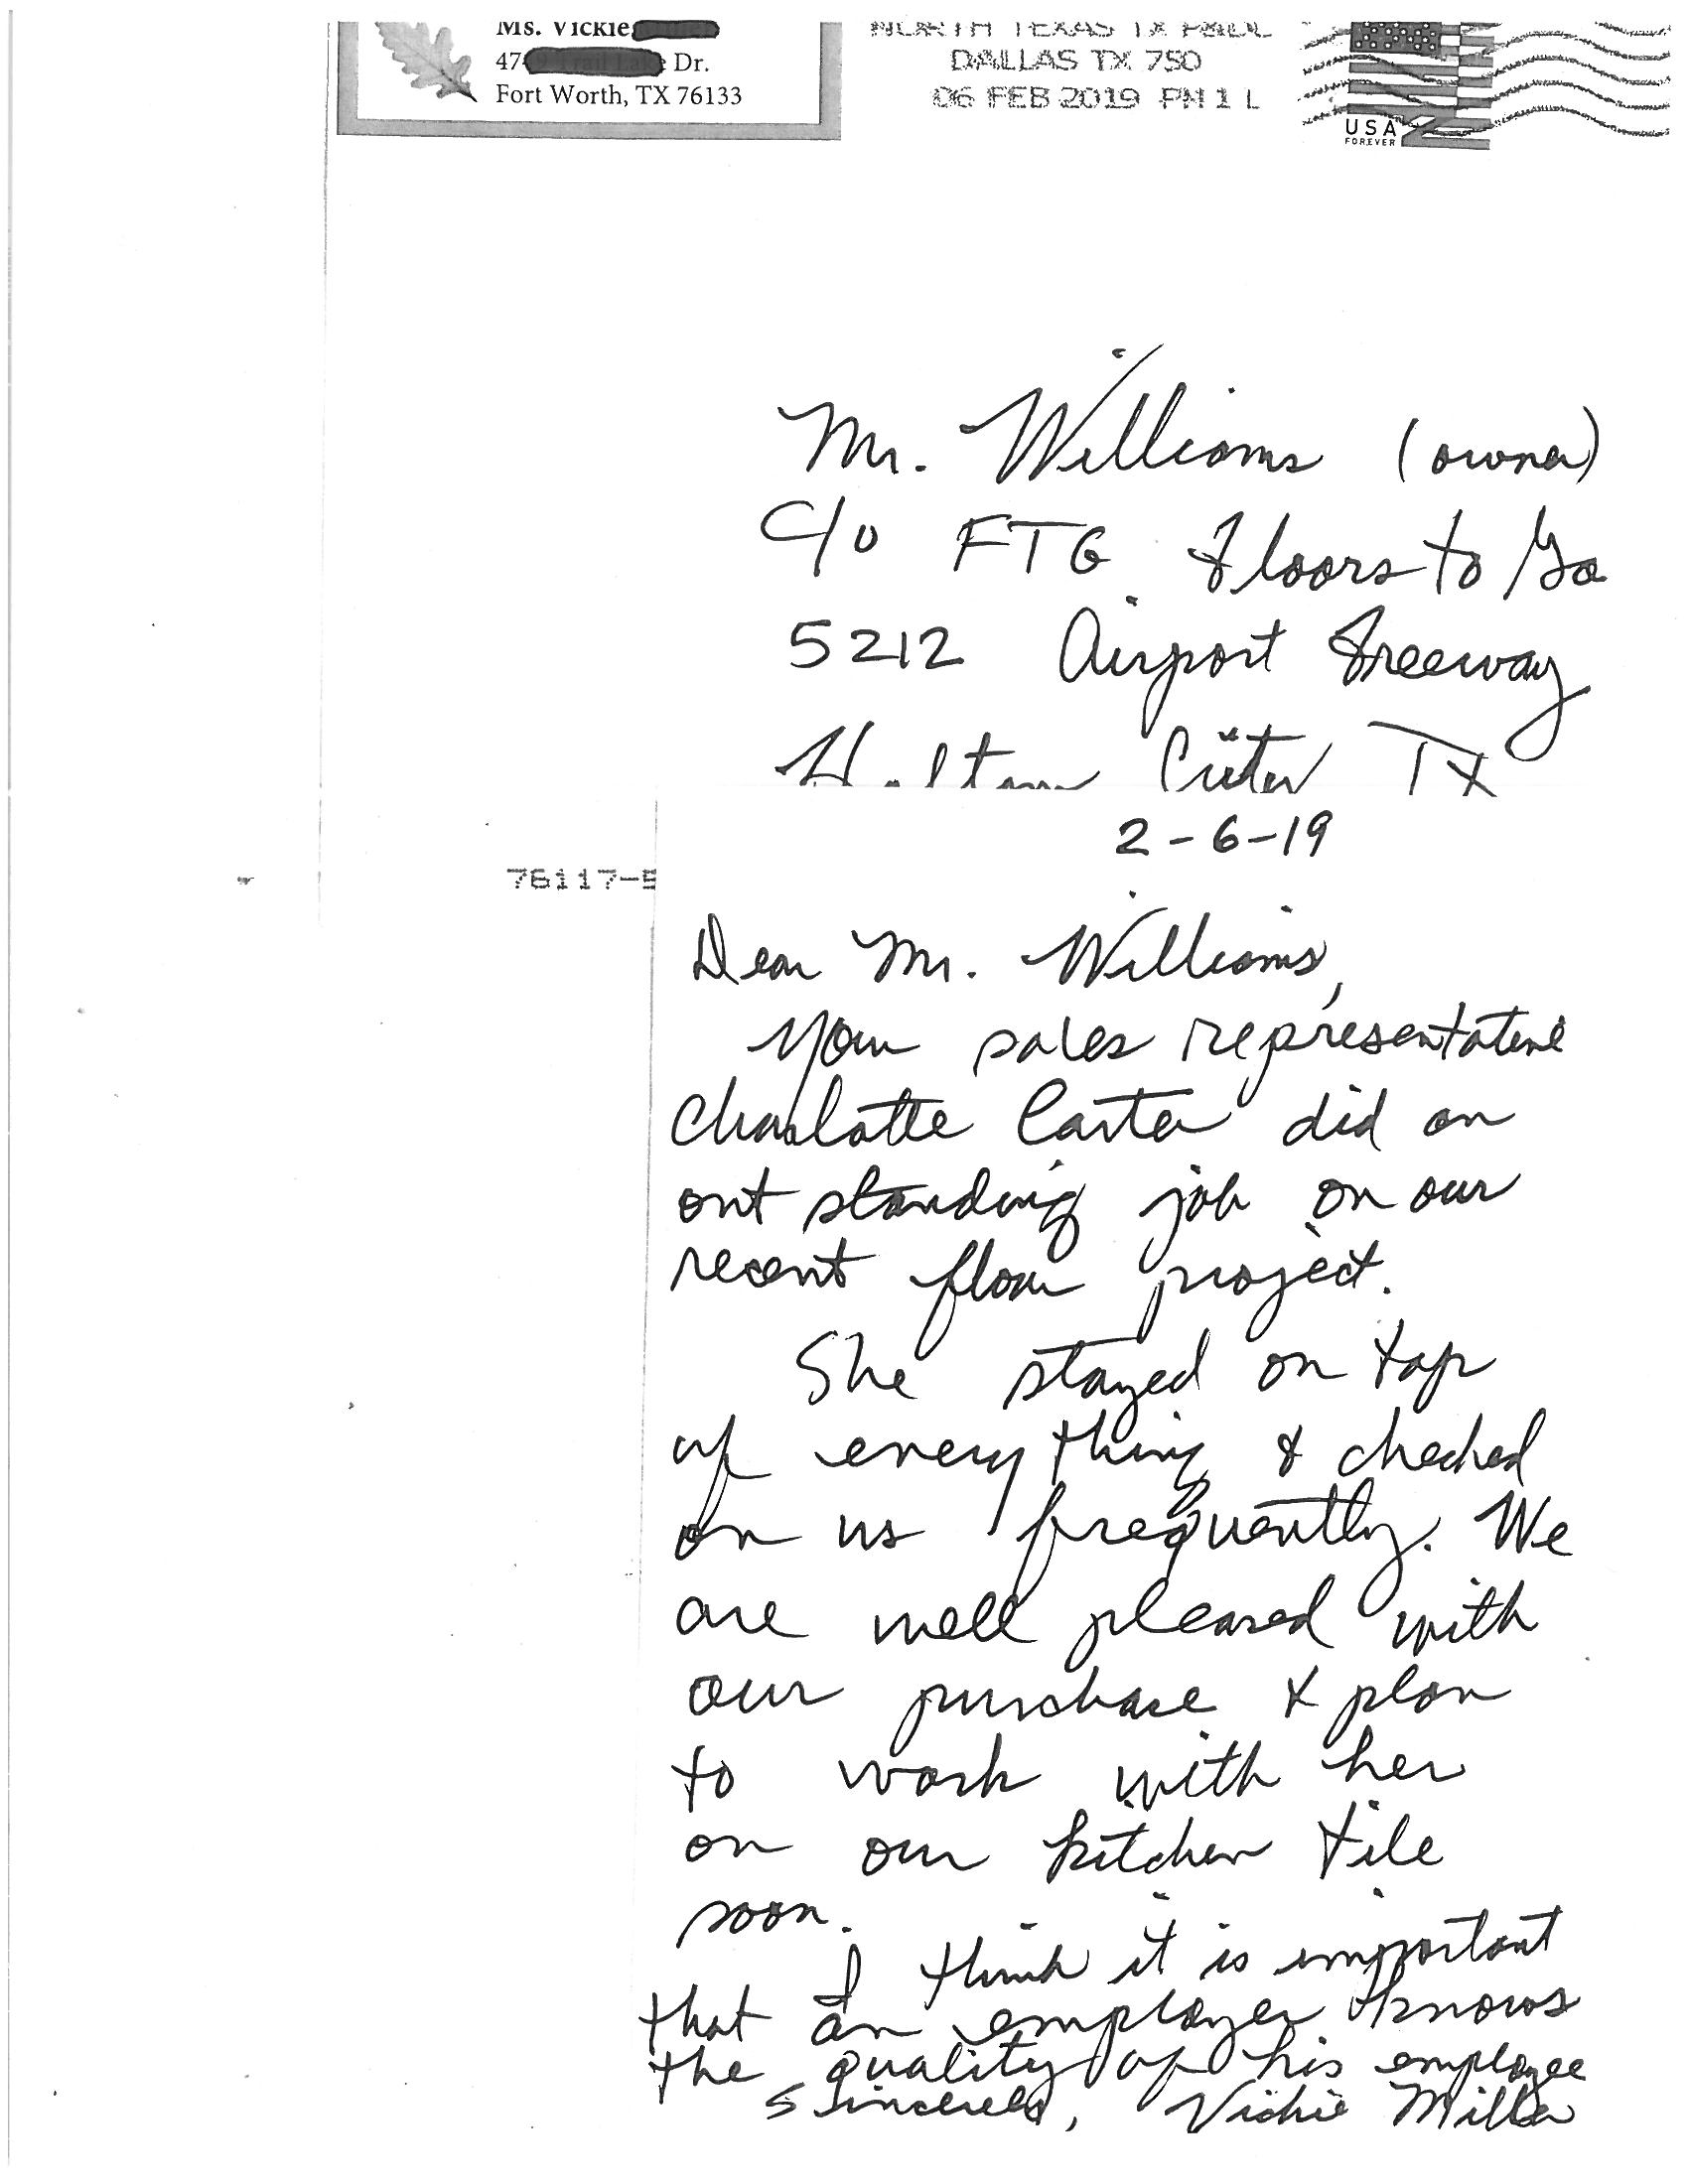 Ms. Vickie
47 Dr.
Fort Worth, TX 76133
NORTH TEXAS TX P&DC
DALLAS TX 750
06 FEB 2019 PM 1 L
USA
FOREVER
Mr. Williams (owner)
c/o FTG Floors to Go
5212 Airport Freeway
Haltom City TX
2-6-19
76117-5
Dear Mr. Williams,
Your sales representative
Charlotte Carter did an
outstanding job on our
recent floor project.
She stayed on top
of everything & checked
on us frequently. We
are well pleased with
our purchase & plan
to work with her
on our kitchen tile
soon.
I think it is important
that an employer knows
the quality of his employee
Sincerely, Vickie Miller